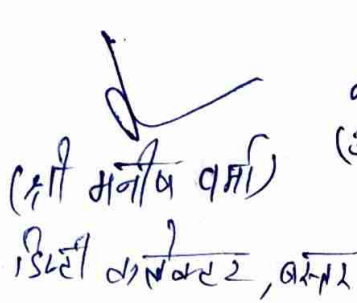 (श्री मनीष वर्मा)
डिप्टी कलेक्टर, बस्तर